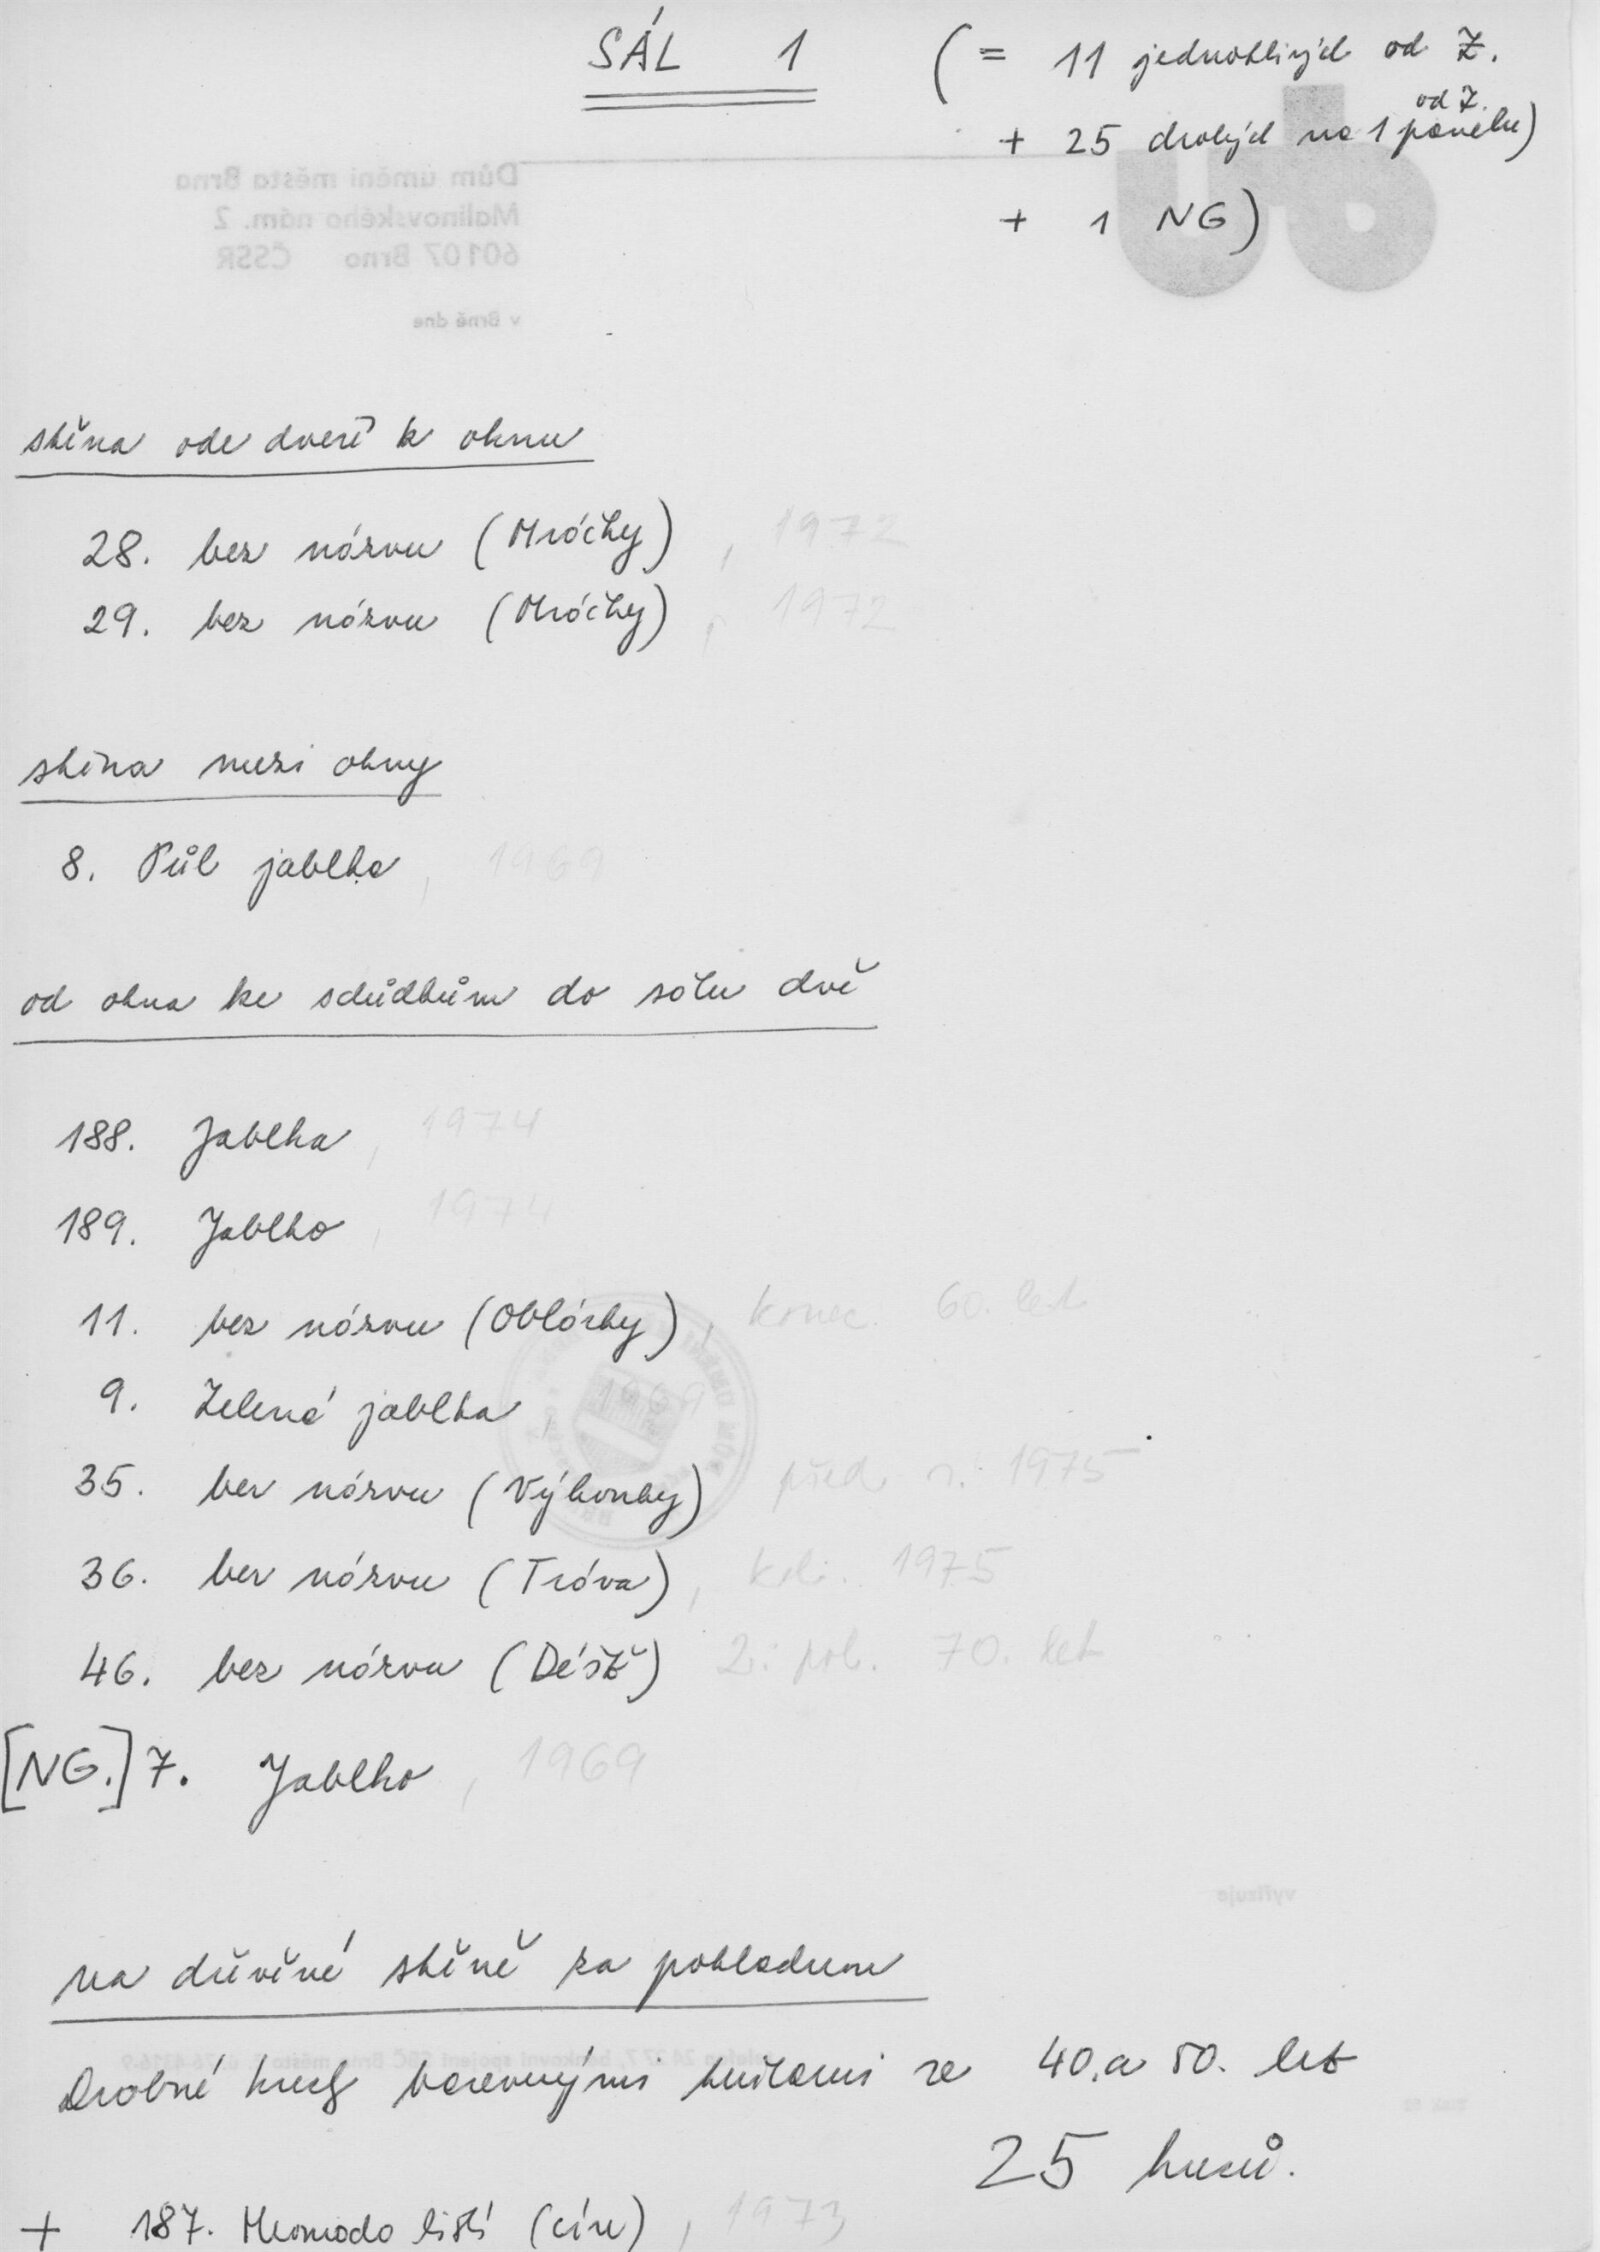 SÁL 1 (= 11 jednotlivých od Z.
od Z.
+ 25 drobných na 1 panelu)
+ 1 NG)
Dům umění města Brna
Malinovského nám. 2
60107 Brno ČSSR
v Brně dne
stěna ode dveří k oknu
28. bez názvu (Mráčky), 1972
29. bez názvu (Mráčky), 1972
stěna mezi okny
8. Půl jablka, 1969
od okna ke schůdkům do sálu dvě
188. Jablka, 1974
189. Jablko, 1974
11. bez názvu (Oblázky), konec 60. let
9. Zelená jablka, 1969
35. bez názvu (Výhonky) před r. 1975
36. bez názvu (Tráva), kol. 1975
46. bez názvu (Déšť) 2. pol. 70. let
[NG.] 7. Jablko, 1969
vyřizuje
na důvěrné stěně za pokladnou
Drobné kresby barevnými křídami ze 40. a 50. let
25 kusů.
+ 187. Hromada listí (cín), 1973